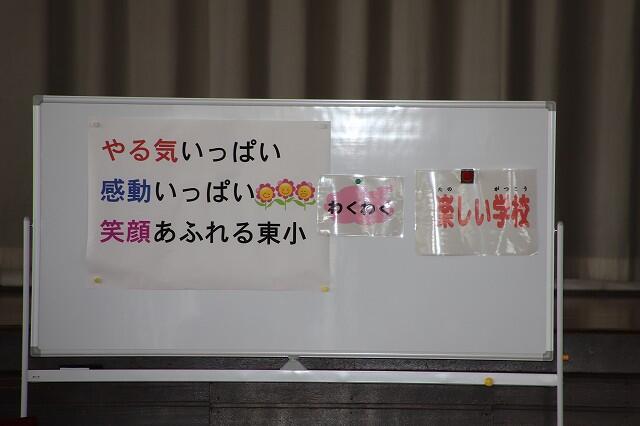 やる気いっぱい
感動いっぱい
笑顔あふれる東小
わくわく
たの がっこう
楽しい学校